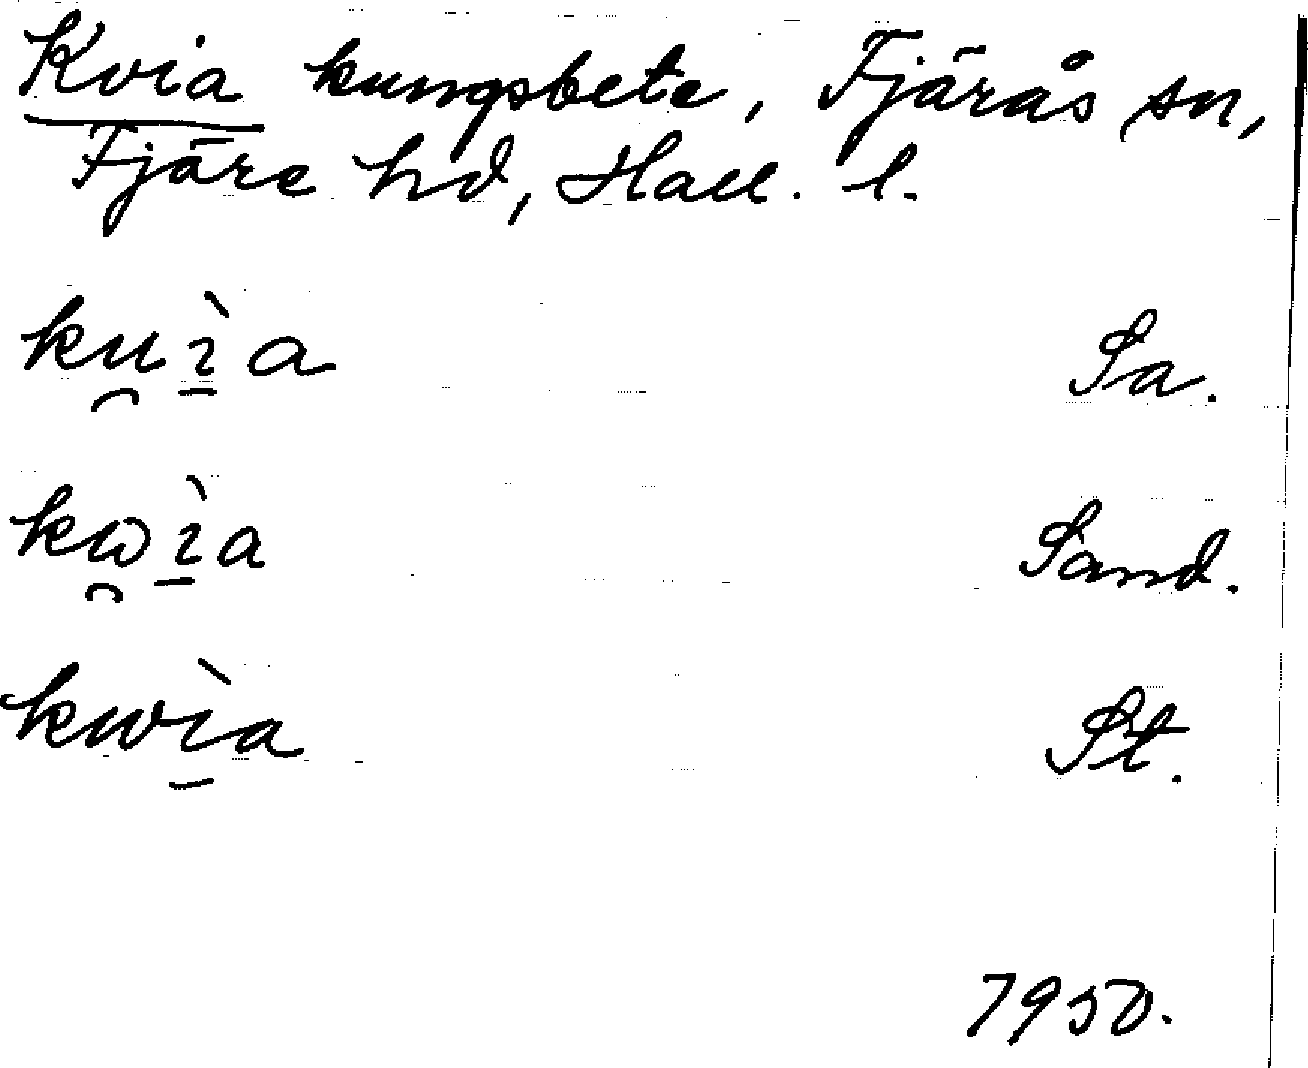 Kvia kungsbete, Fjärås sn,
Fjäre hd, Hall. l.
ku̯ı̱̀a Sa.
kω̯ı̱̀a Sand.
kwı̱̀a St.
7950.